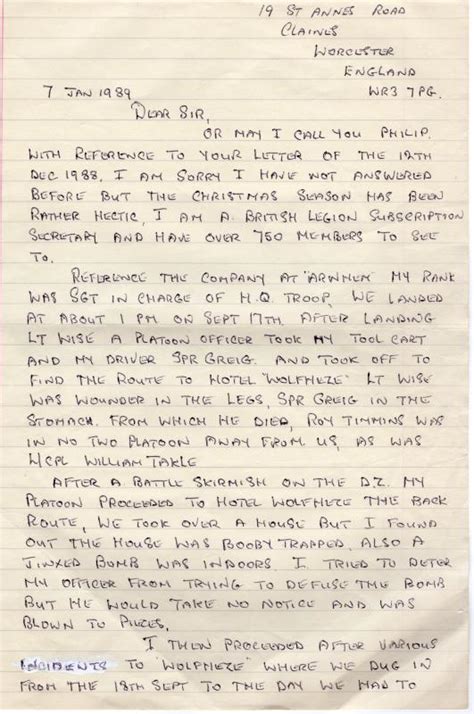 19 ST ANNES ROAD
CLAINES
WORCESTER
ENGLAND
7 JAN 1989 WR3 7PG.
DEAR SIR,
OR MAY I CALL YOU PHILIP.
WITH REFERENCE TO YOUR LETTER OF THE 12TH
DEC 1988. I AM SORRY I HAVE NOT ANSWERED
BEFORE BUT THE CHRISTMAS SEASON HAS BEEN
RATHER HECTIC, I AM A BRITISH LEGION SUBSCRIPTION
SECRETARY AND HAVE OVER 750 MEMBERS TO SEE
TO.
REFERENCE THE COMPANY AT "ARNHEM" MY RANK
WAS SGT IN CHARGE OF H.Q. TROOP, WE LANDED
AT ABOUT 1 PM ON SEPT 17TH. AFTER LANDING
LT WISE A PLATOON OFFICER TOOK MY TOOL CART
AND MY DRIVER SPR GREIG. AND TOOK OFF TO
FIND THE ROUTE TO HOTEL "WOLFHEZE" LT WISE
WAS WOUNDER IN THE LEGS, SPR GREIG IN THE
STOMACH. FROM WHICH HE DIED, ROY TIMMINS WAS
IN NO TWO PLATOON AWAY FROM US, AS WAS
L/CPL WILLIAM TAKLE
AFTER A BATTLE SKIRMISH ON THE D.Z. MY
PLATOON PROCEEDED TO HOTEL WOLFHEZE THE BACK
ROUTE, WE TOOK OVER A HOUSE BUT I FOUND
OUT THE HOUSE WAS BOOBY TRAPPED, ALSO A
JINXED BOMB WAS INDOORS. I TRIED TO DETER
MY OFFICER FROM TRYING TO DEFUSE THE BOMB
BUT HE WOULD TAKE NO NOTICE AND WAS
BLOWN TO PIECES.
I THEN PROCEEDED AFTER VARIOUS
INCIDENTS TO "WOLFHEZE" WHERE WE DUG IN
FROM THE 18TH SEPT TO THE DAY WE HAD TO